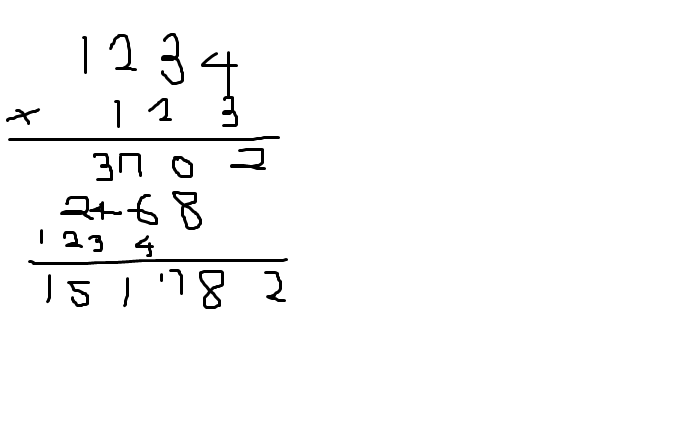 1234
× 123
3702
2468
1234
151782